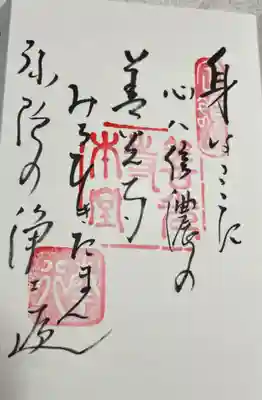 身はここに
心ハ信濃の
善光寺
みちびきたまへ
弥陀の浄土へ
本堂